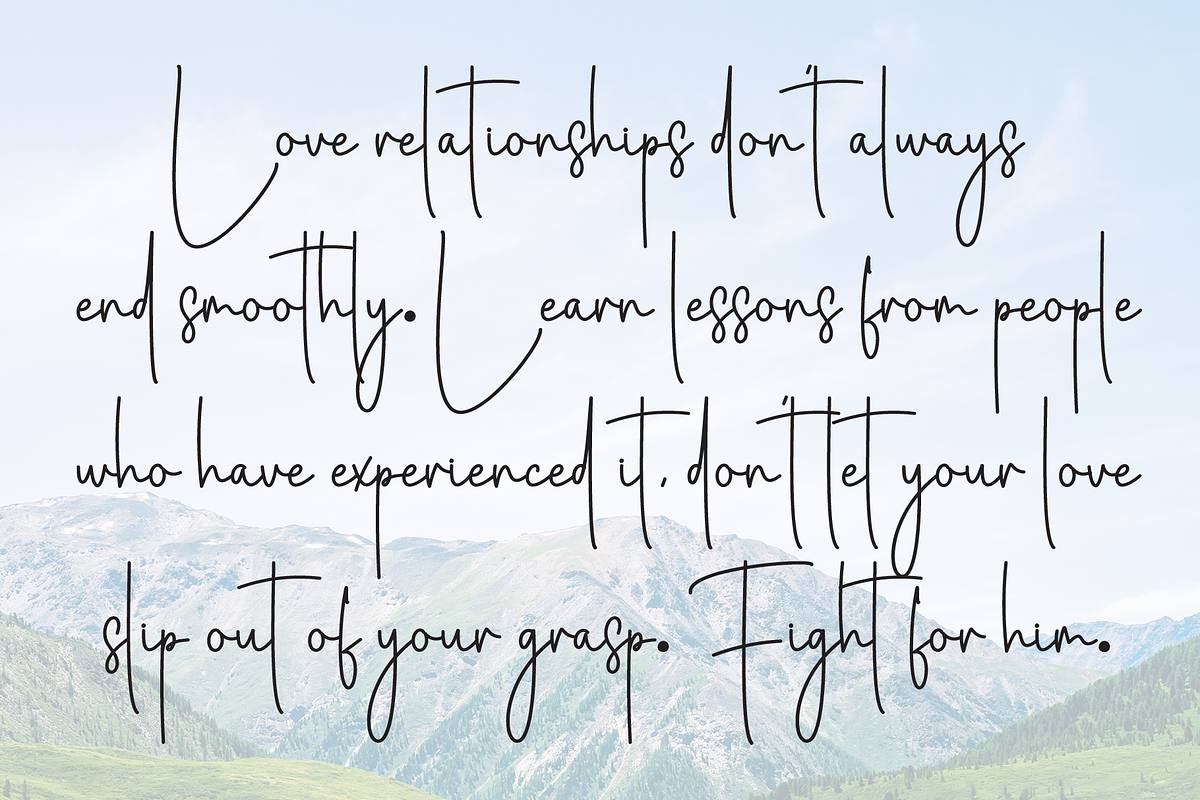 Love relationships don't always
end smoothly. Learn lessons from people
who have experienced it, don't let your love
slip out of your grasp. Fight for him.